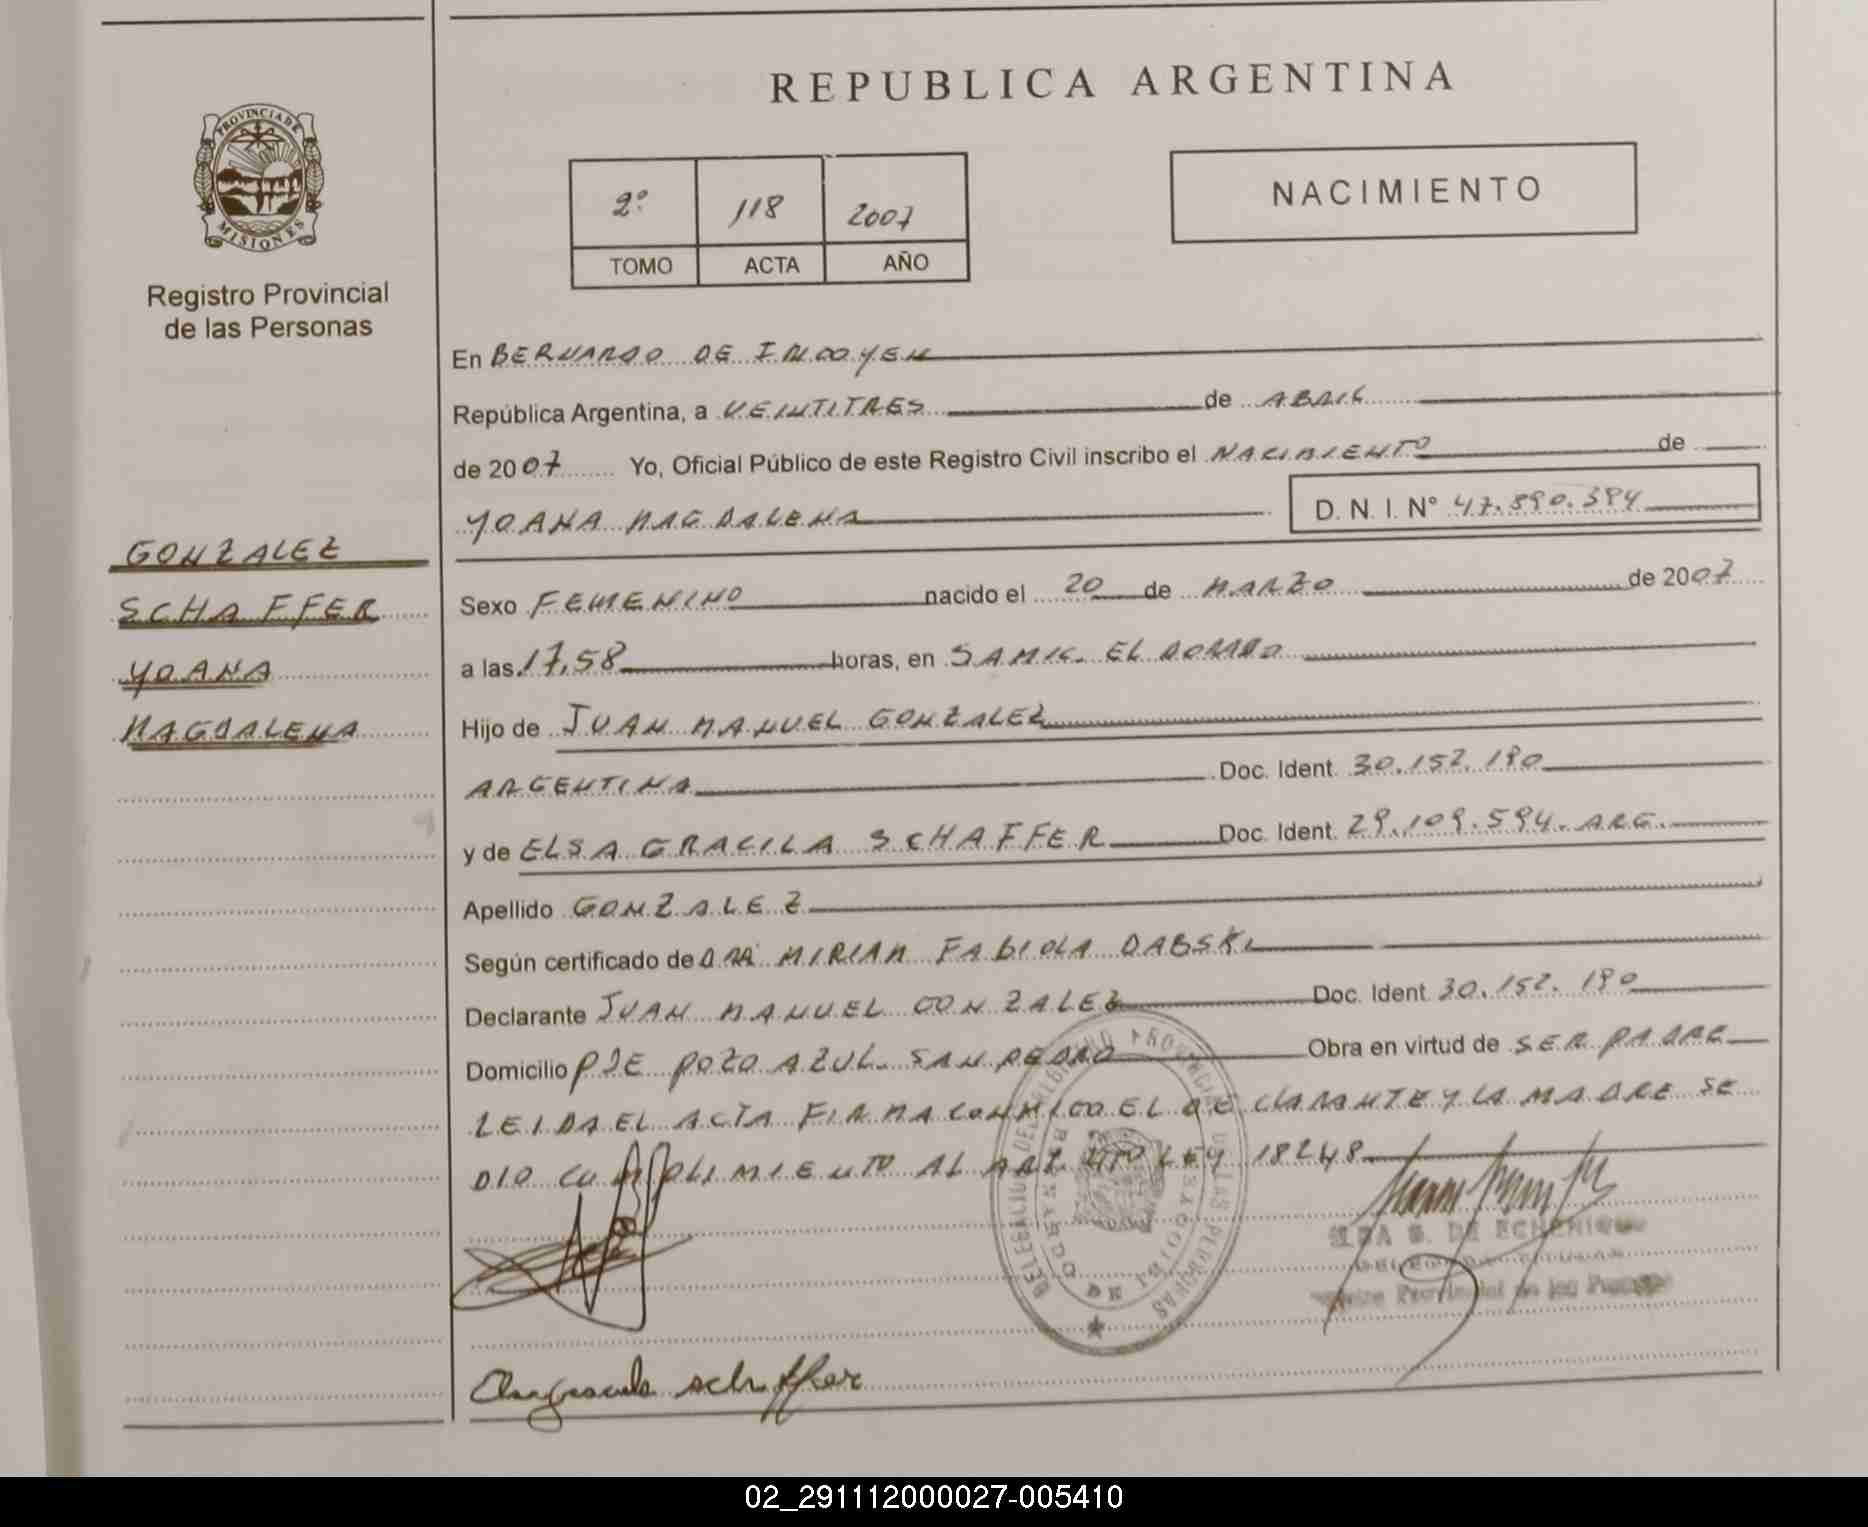 REPUBLICA ARGENTINA
PROVINCIA DE
MISIONES
Registro Provincial
de las Personas
2º 118 2007
TOMO ACTA AÑO
NACIMIENTO
En BERNARDO DE IRIGOYEN
República Argentina, a VEINTITRES de ABRIL
de 2007 Yo, Oficial Público de este Registro Civil inscribo el NACIMIENTO de
YOANA MAGDALENA D. N. I. Nº 47.890.384
GONZALEZ
SCHAFFER
YOANA
MAGDALENA
Sexo FEMENINO nacido el 20 de MARZO de 2007
a las 17,58 horas, en SAMIC. EL DORADO
Hijo de JUAN MANUEL GONZALEZ
ARGENTINA Doc. Ident. 30.152.190
y de ELSA GRACILA SCHAFFER Doc. Ident. 29.109.594. ARG.
Apellido GONZALEZ
Según certificado de DRA MIRIAM FABIOLA DABSKI
Declarante JUAN MANUEL GONZALEZ Doc. Ident. 30.152.190
Domicilio PJE POZO AZUL. SAN PEDRO Obra en virtud de SER PADRE
LEIDA EL ACTA FIRMA CONMIGO EL DECLARANTE Y LA MADRE SE
DIO CUMPLIMIENTO AL ART. LEY 18248
DE ECHENIQUE
Provincial de las
schaffer
02_291112000027-005410